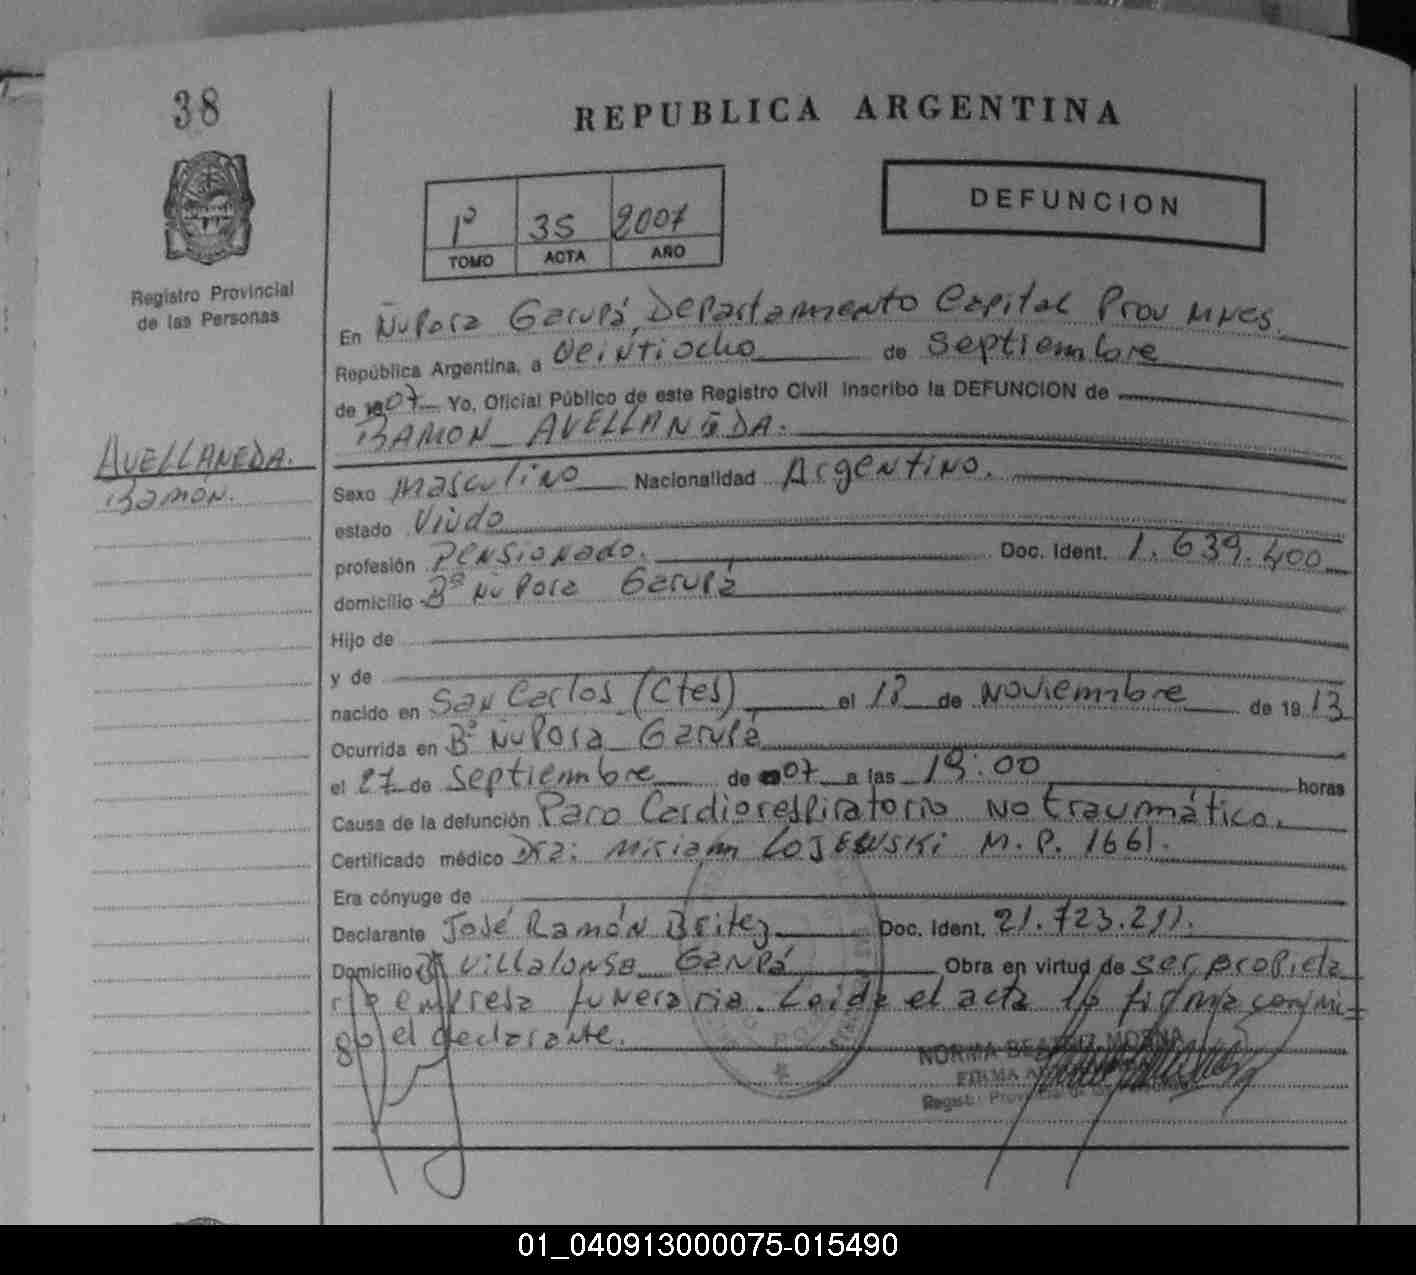 38
REPUBLICA ARGENTINA
1º 35 2007
TOMO ACTA AÑO
DEFUNCION
Registro Provincial
de las Personas
AVELLANEDA.
Ramón.
En Ñu Pora Garupá, Departamento Capital Prov Mnes.
República Argentina, a Veintiocho de Septiembre
de 07 Yo, Oficial Público de este Registro Civil inscribo la DEFUNCION de
RAMON AVELLANEDA.
Sexo Masculino Nacionalidad Argentino.
estado Viudo
profesión Pensionado. Doc. Ident. 1.639.400
domicilio Bº Ñu Pora Garupá
Hijo de
y de
nacido en San Carlos (Ctes) el de Noviembre de 1913
Ocurrida en Bº Ñu Pora Garupá
el 27 de Septiembre de 07 a las 19:00 horas
Causa de la defunción Paro Cardiorespiratorio No traumático.
Certificado médico Dra: Miriam LOJEWSKi M.P. 1661.
Era cónyuge de
Declarante José Ramón Britez Doc. Ident. 21.723.211.
Domicilio Villalonga Garupá Obra en virtud de ser propieta
rio empresa funeraria. Leida el acta la firma conmi
go el declarante.
NORMA BEATRIZ
FIRMA
01_040913000075-015490